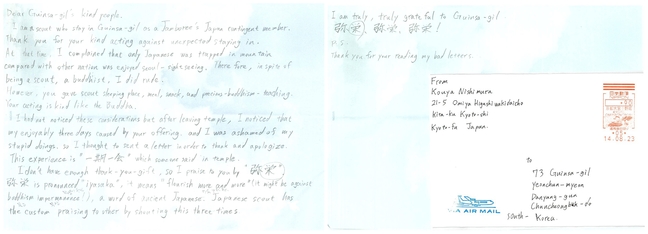 Dear Guinsa-gil's kind people.
I am a scout who stay in Guinsa-gil as a Jamboree's Japan contingent member.
Thank you for your kind acting against unexpected staying in.
At that time, I complained that only Japanese was trapped in mountain
compared with other nation was enjoyed seoul-sightseeing. Therefore, in spite of
being a scout, a buddhist, I did rude.
However, you gave scout sleeping place, meal, snack, and precious-buddhism-teaching.
Your acting is kind like the Buddha.
I had not noticed these considerations but after leaving temple, I noticed that
my enjoyably three days caused by your offering, and I was ashamed of my
stupid doings. so I thought to sent a letter in order to thank and apologize.
This experience is "一期一会" which someone said in temple.
I don't have enough thank-you-gift, so I praise to you by "弥栄"
弥栄 is pronounced "iyasaka", it means "flourish more and more" (it might be against
buddhism impermanence!), a word of ancient Japanese. Japanese scout has
the custom praising to other by shouting this three times
I am truly, truly grateful to Guinsa-gil
弥栄、弥栄、弥栄!
P.S.
Thank you for your reading my bad letters.
From
Kouya Nishimura
21-5 Omiya Higashiwakidaicho
Kita-ku Kyoto-shi
Kyoto-fu Japan.
日本郵便
14-08-23
to
73 Guinsa-gil
Yeongchun-myeon
Danyang-gun
Chungcheongbuk-do
South- Korea.
VIA AIR MAIL